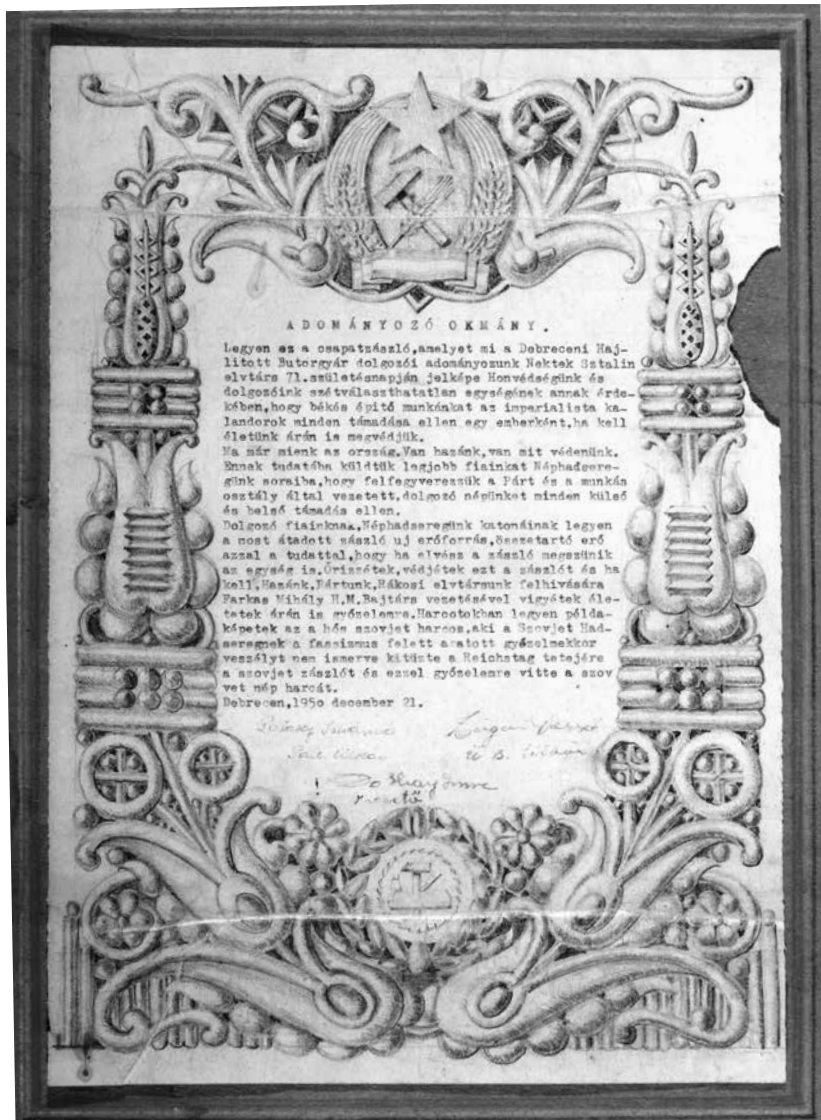 ADOMÁNYOZÓ OKMÁNY.
Legyen ez a csapatzászló,amelyet mi a Debreceni Haj-
litott Butorgyár dolgozói adományozunk Nektek Sztalin
elvtárs 71.születésnapján jelképe Honvédségünk és
dolgozóink szétválaszthatatlan egységének annak érde-
kében,hogy békés épitő munkánkat az imperialista ka-
landorok minden támadása ellen egy emberként,ha kell
életünk árán is megvédjük.
Ma már mienk az ország.Van hazánk,van mit védenünk.
Ennek tudatába küldtük legjobb fiainkat Néphadsere-
günk soraiba,hogy felfegyverezzük a Párt és a munkás
osztály által vezetett,dolgozó népünket minden külső
és belső támadás ellen.
Dolgozó fiainknak,Néphadseregünk katonáinak legyen
a most átadott zászló uj erőforrás,összetartó erő
azzal a tudattal,hogy ha elvész a zászló megszünik
az egység is.Őrizzétek,védjétek ezt a zászlót és ha
kell,Hazánk,Pártunk,Rákosi elvtársunk felhivására
Farkas Mihály H.M.Bajtárs vezetésével vigyétek éle-
tetek árán is győzelemre.Harcotokban legyen példa-
képetek az a hős szovjet harcos,aki a Szovjet Had-
seregnek a fasizmus felett aratott győzelmekkor
veszélyt nem ismerve kitüzte a Reichstag tetejére
a szovjet zászlót és ezzel győzelemre vitte a szov
vet nép harcát.
Debrecen,195o december 21.
Imre